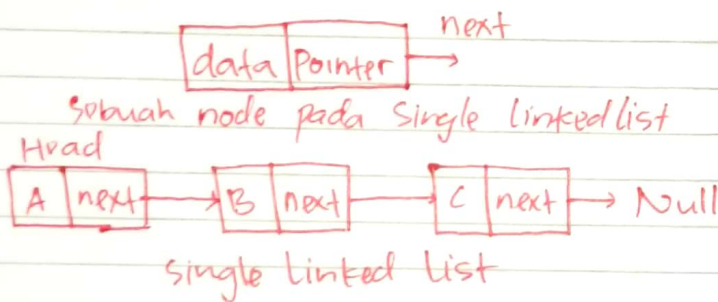 next
data Pointer
Sebuah node pada Single linkedlist
Head
A next B next C next Null
Single Linked List